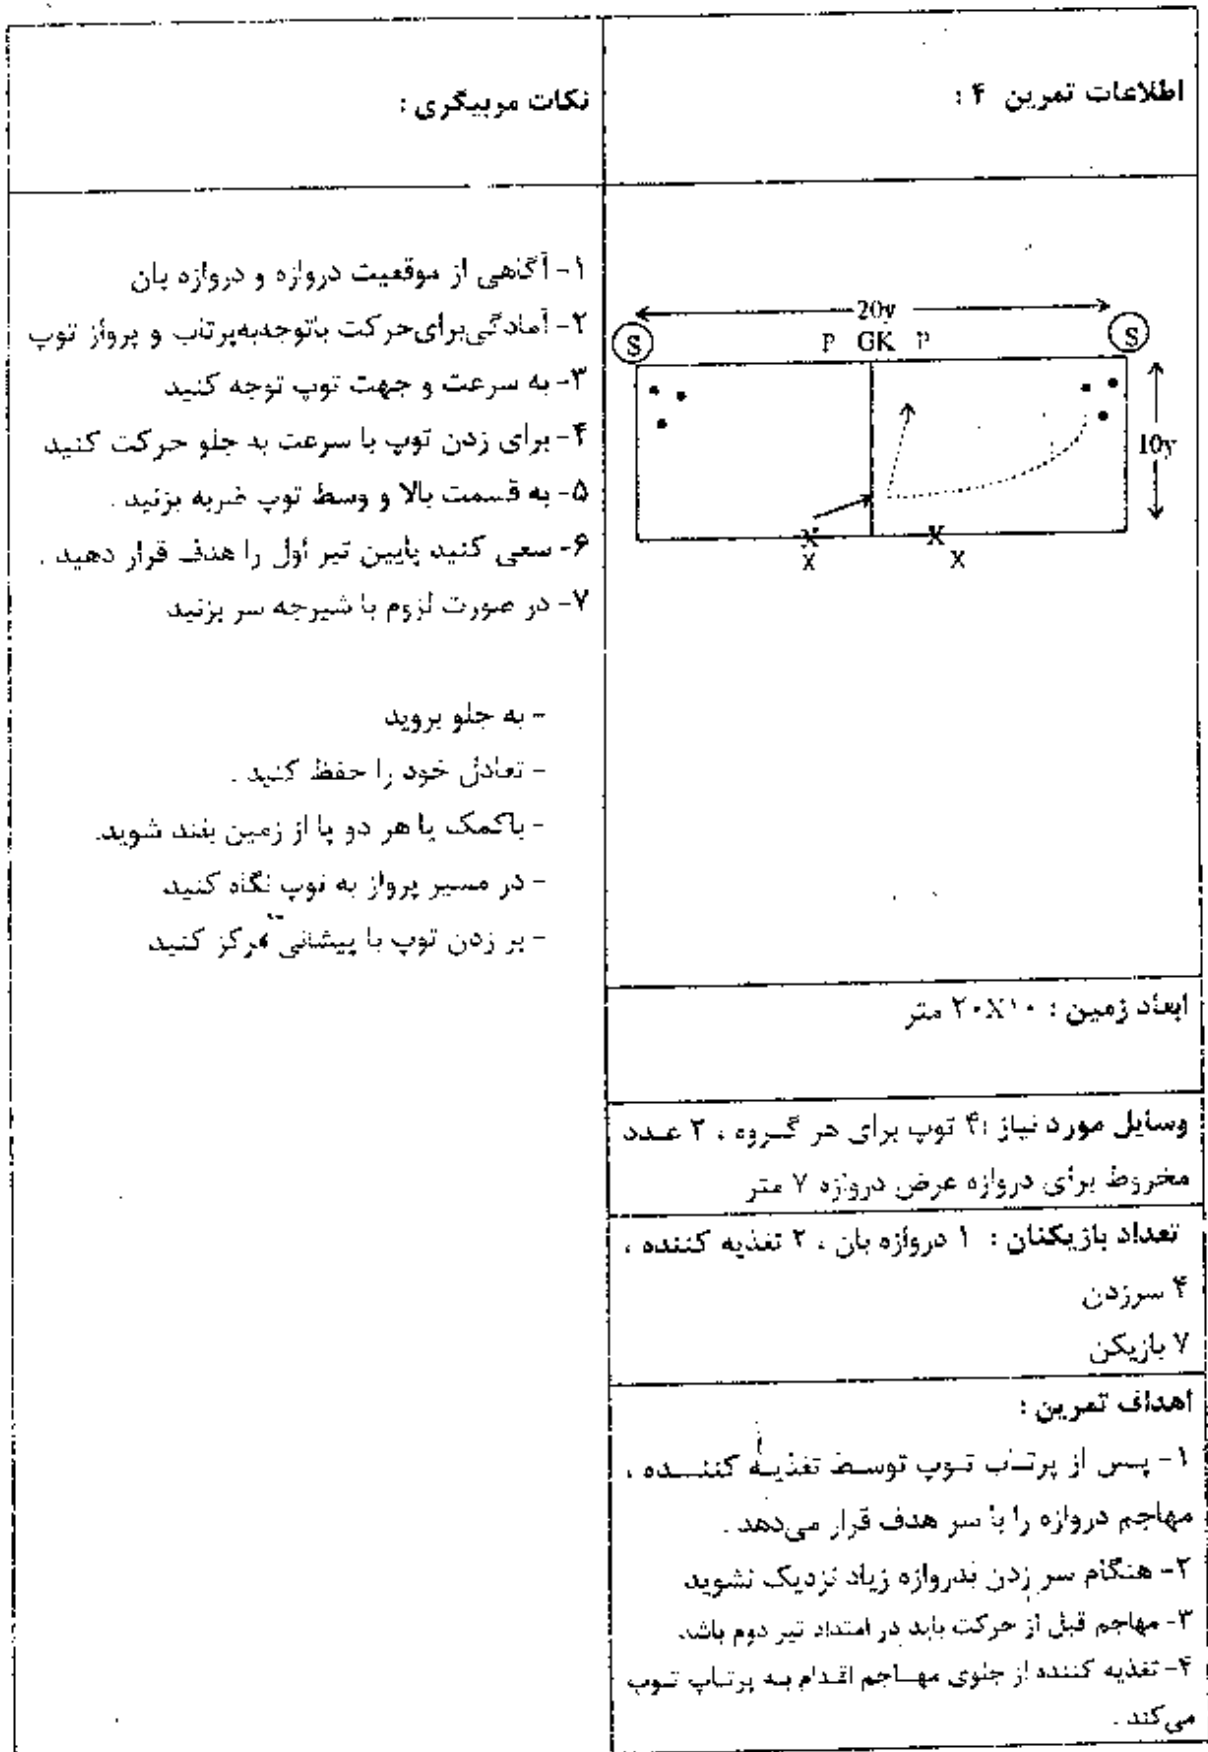 اطلاعات تمرین ۴ :
20y
S P GK P S
10y
X X
X X
ابعاد زمین : ۲۰X۱۰ متر
وسایل مورد نیاز :۴ توپ برای هر گروه ، ۲ عدد
مخروط برای دروازه عرض دروازه ۷ متر
تعداد بازیکنان : ۱ دروازه بان ، ۲ تغذیه کننده ،
۴ سرزدن
۷ بازیکن
اهداف تمرین :
۱- پس از پرتاب توپ توسط تغذیه کننده ،
مهاجم دروازه را با سر هدف قرار می‌دهد .
۲- هنگام سر زدن بدروازه زیاد نزدیک نشوید
۳- مهاجم قبل از حرکت باید در امتداد تیر دوم باشد
۴- تغذیه کننده از جلوی مهاجم اقدام به پرتاپ توپ
می‌کند .
نکات مربیگری :
۱- آگاهی از موقعیت دروازه و دروازه بان
۲- آمادگی‌برای‌حرکت باتوجه‌به‌پرتاب و پرواز توپ
۳- به سرعت و جهت توپ توجه کنید
۴- برای زدن توپ با سرعت به جلو حرکت کنید
۵- به قسمت بالا و وسط توپ ضربه بزنید .
۶- سعی کنید پایین تیر اول را هدف قرار دهید .
۷- در صورت لزوم با شیرجه سر بزنید
- به جلو بروید
- تعادل خود را حفظ کنید .
- باکمک یا هر دو پا از زمین بلند شوید.
- در مسیر پرواز به توپ نگاه کنید
- بر زدن توپ با پیشانی تمرکز کنید